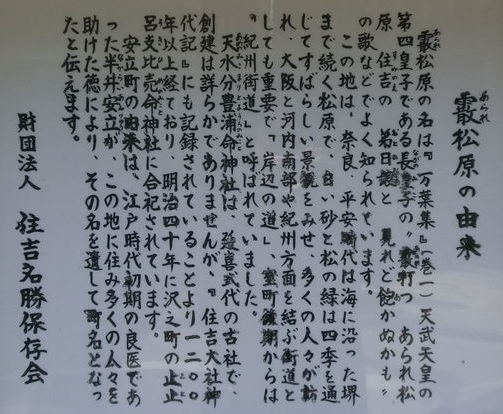 霰松原の由来
霰松原の名は『万葉集』(巻一)天武天皇の
第四皇子である長皇子の〝霰打つ あられ松
原 住吉の 弟日娘と 見れど飽かぬかも〟
の歌などでよく知られています。
この地は、奈良、平安時代は海に沿った堺
まで続く松原で、白い砂と松の緑は四季を通
じてすばらしい景観をみせ、多くの人々が訪
れ、大阪と河内南部や紀州方面を結ぶ街道と
しても重要で、「岸辺の道」、室町後期からは
「紀州街道」と呼ばれていました。
天水分豊浦命神社は、延喜式代の古社で、
創建は詳らかでありませんが、『住吉大社神
代記』にも記録されていることより一二〇〇
年以上経ており、明治四十年に沢之町の止止
呂支比売命神社に合祀されています。
安立町の由来は、江戸時代初期の良医であ
った半井安立が、この地に住み多くの人々を
助けた徳により、その名を遺して町名となっ
たと伝えます。
財団法人 住吉名勝保存会